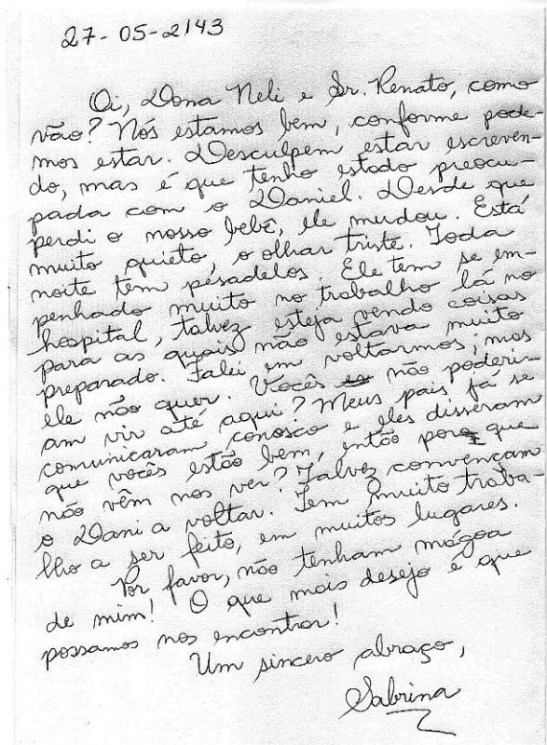 27-05-2143
Oi, Dona Neli e Sr. Renato, como
vão? Nós estamos bem, conforme pode-
mos estar. Desculpem estar escreven-
do, mas é que tenho estado preocu-
pada com o Daniel. Desde que
perdi o nosso bebê, ele mudou. Está
muito quieto, o olhar triste. Toda
noite tem pesadelos. Ele tem se em-
penhado muito no trabalho lá no
hospital, talvez esteja vendo coisas
para as quais não estava muito
preparado. Falei em voltarmos; mas
ele não quer. Vocês não poderi-
am vir até aqui? Meus pais já se
comunicaram conosco e eles disseram
que vocês estão bem, então por que
não vêm nos ver? Talvez convençam
o Dani a voltar. Tem muito traba-
lho a ser feito, em muitos lugares.
Por favor, não tenham mágoa
de mim! O que mais desejo é que
possamos nos encontrar!
Um sincero abraço,
Sabrina